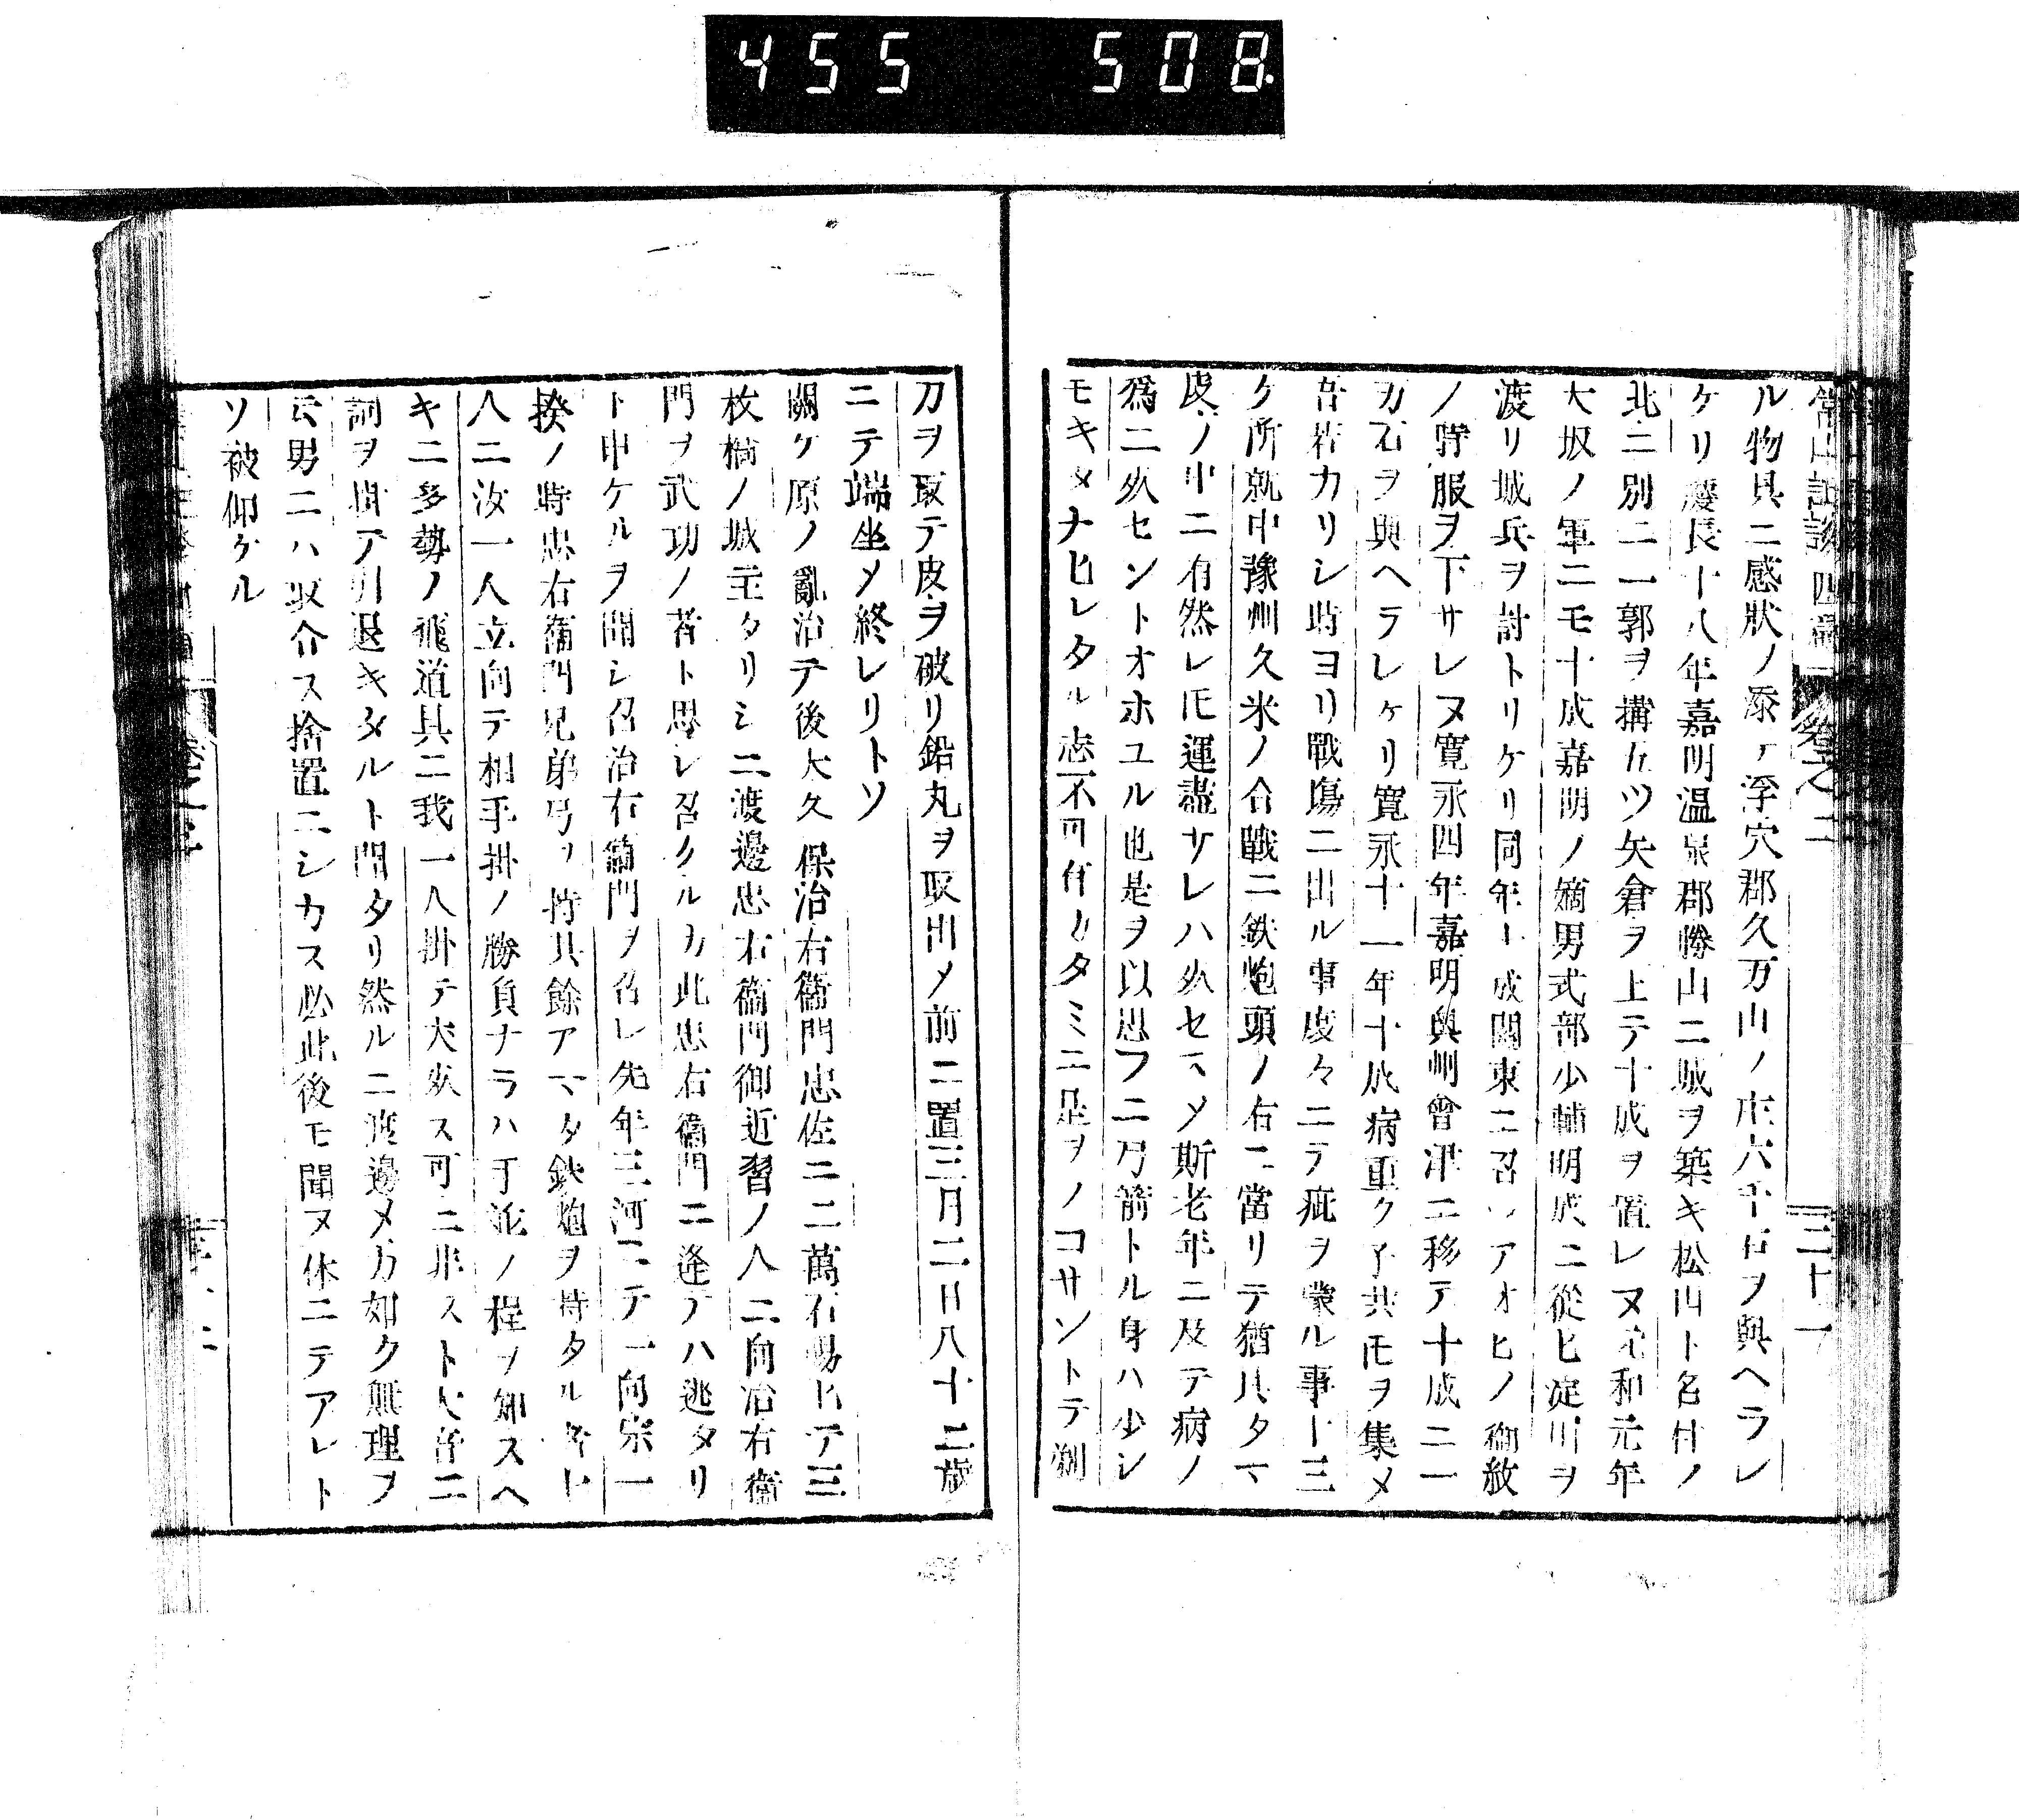 455 508
常山紀談 四編 卷之二 三十一
ル物具ニ感狀ノ添テ浮穴郡久万山ノ庄六千石ヲ與ヘラレ
ケリ慶長十八年嘉明温泉郡勝山ニ城ヲ築キ松山ト名付ノ
北ニ別ニ一郭ヲ搆五ツ矢倉ヲ上テ十成ヲ置レヌ元和元年
大坂ノ軍ニモ十成嘉明ノ嫡男式部少輔明成ニ從ヒ淀川ヲ
渡リ城兵ヲ討トリケリ同年十成関東ニ召レアオヒノ御紋
ノ時服ヲ下サレヌ寛永四年嘉明奥州會津ニ移テ十成ニ一
万石ヲ與ヘラレケリ寛永十一年十成病重ク子共モヲ集メ
吾若カリシ時ヨリ戰塲ニ出ル事度々ニテ疵ヲ蒙ル事十三
ケ所就中豫州久米ノ合戰ニ鉄炮頭ノ右ニ當リテ猶其タマ
皮ノ中ニ有然レ𪜈運盡サレハ死セスメ斯老年ニ及テ病ノ
爲ニ死セントオホユル也是ヲ以思フニ弓箭トル身ハ少シ
モキタナヒレタル志不可有カタミニ是ヲノコサントテ剃
刀ヲ取テ皮ヲ破リ鉛丸ヲ取出メ前ニ置三月二日八十二歳
ニテ端坐メ終レリトソ
關ケ原ノ亂治テ後大久保治右衞門忠佐ニ二萬石賜ヒテ三
枚橋ノ城主タリシニ渡邊忠右衞門御近習ノ人ニ向治右衞
門ヲ武功ノ者ト思シ召クルカ此忠右衞門ニ逢テハ逃タリ
ト申ケルヲ聞シ召治右衞門ヲ召レ先年三河ニテ一向宗一
揆ノ時忠右衞門兄弟弓ヲ持其餘アマタ鉄炮ヲ持タル者𪜈
八ニ汝一人立向テ相手掛ノ勝負ナラハ丁沱ノ程ヲ知スヘ
キニ多勢ノ飛道具ニ我一人掛テ犬死ス可ニ非スト大音ニ
詞ヲ掛テ引退キタルト聞タリ然ルニ渡邊メカ如ク無理ヲ
云男ニハ取合ス捨置ニシカス必此後モ聞ヌ体ニテアレト
ソ被仰ケル